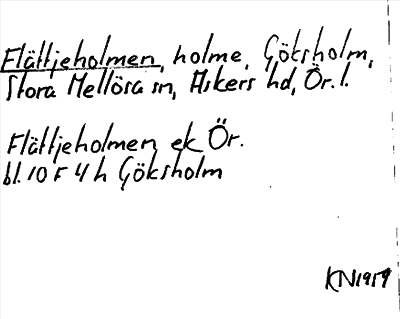 Flättjeholmen, holme, Göksholm,
Stora Mellösa sn, Askers hd, Ör. l.
Flättjeholmen ek Ör.
bl. 10 F 4 h Göksholm
KN1959